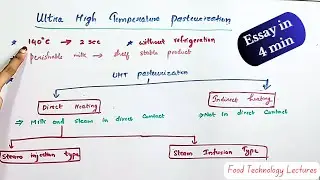 Ultra High Temperature Pasteurization
* 140°C → 2 sec * without refrigeration
perishable milk → shelf stable product
Essay in
4 min
UHT pasteurization
Direct Heating
Indirect heating
→ Milk and steam in direct contact
→ Not in direct Contact
Steam injection type
Steam Infusion Type
Food Technology Lectures